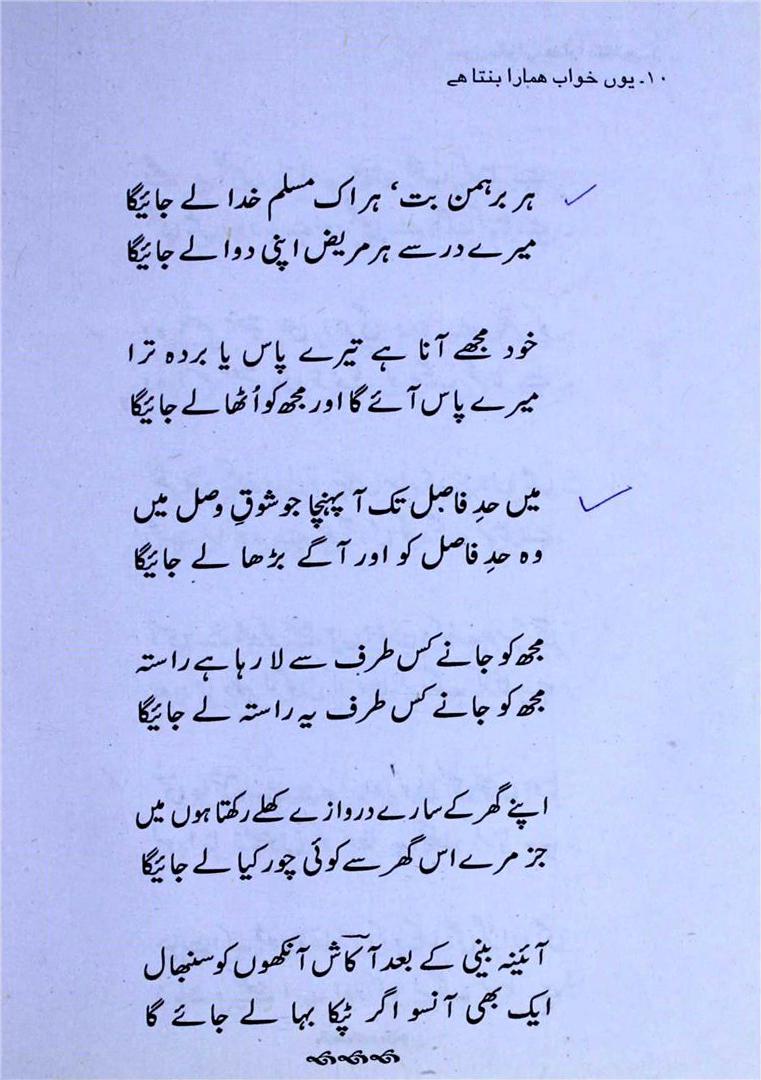 ۱۰۔ یوں خواب ھمارا بنتا ھے
ہر برہمن بت، ہر اک مسلم خدا لے جائیگا
میرے در سے ہر مریض اپنی دوا لے جائیگا
خود مجھے آنا ہے تیرے پاس یا بردہ ترا
میرے پاس آئے گا اور مجھ کو اُٹھا لے جائیگا
میں حدِ فاصل تک آ پہنچا جو شوقِ وصل میں
وہ حدِ فاصل کو اور آگے بڑھا لے جائیگا
مجھ کو جانے کس طرف سے لا رہا ہے راستہ
مجھ کو جانے کس طرف یہ راستہ لے جائیگا
اپنے گھر کے سارے دروازے کھلے رکھتا ہوں میں
جز مرے اس گھر سے کوئی چور کیا لے جائیگا
آئینہ بینی کے بعد آکاش آنکھوں کو سنبھال
ایک بھی آنسو اگر ٹپکا بہا لے جائے گا